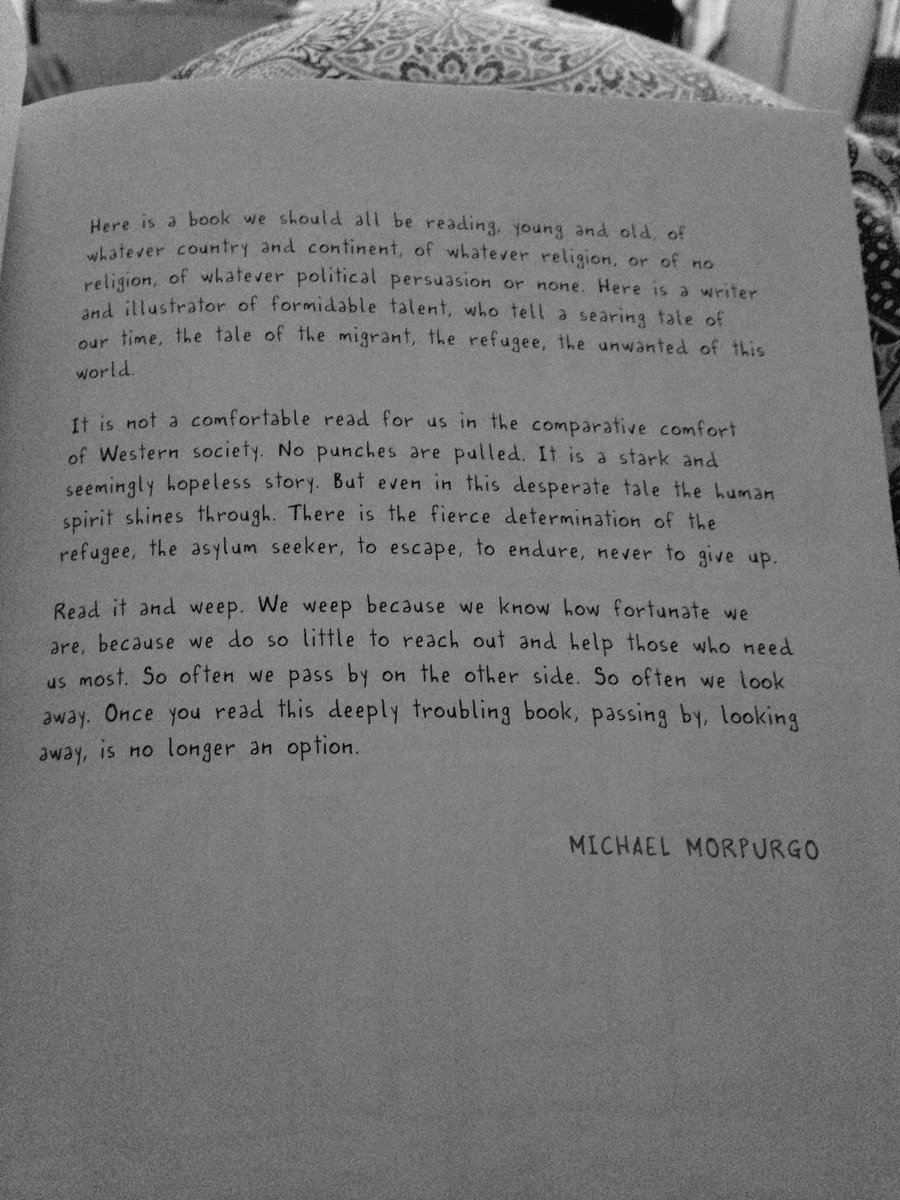 Here is a book we should all be reading, young and old, of
whatever country and continent, of whatever religion, or of no
religion, of whatever political persuasion or none. Here is a writer
and illustrator of formidable talent, who tell a searing tale of
our time, the tale of the migrant, the refugee, the unwanted of this
world.
It is not a comfortable read for us in the comparative comfort
of Western society. No punches are pulled. It is a stark and
seemingly hopeless story. But even in this desperate tale the human
spirit shines through. There is the fierce determination of the
refugee, the asylum seeker, to escape, to endure, never to give up.
Read it and weep. We weep because we know how fortunate we
are, because we do so little to reach out and help those who need
us most. So often we pass by on the other side. So often we look
away. Once you read this deeply troubling book, passing by, looking
away, is no longer an option.
MICHAEL MORPURGO